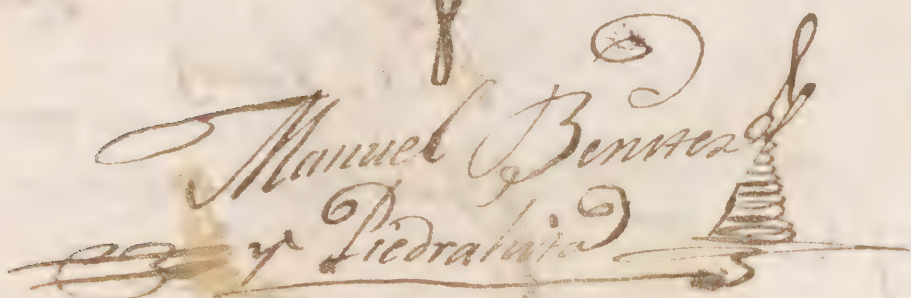 Manuel Benitez
y Piedrahita